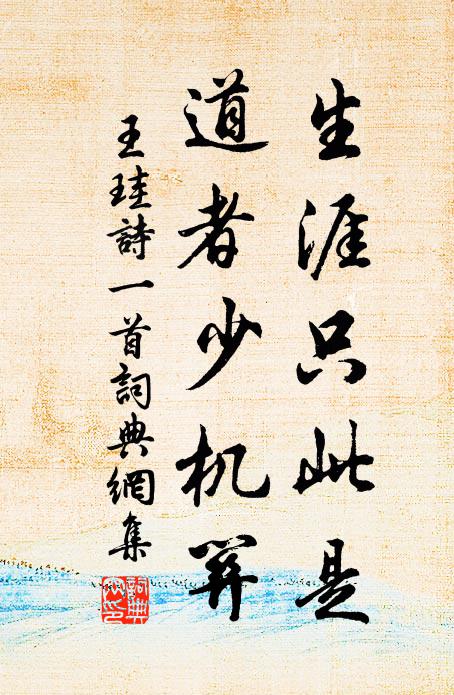 生涯只此是
道者少机
王珪詩一首詞典網集